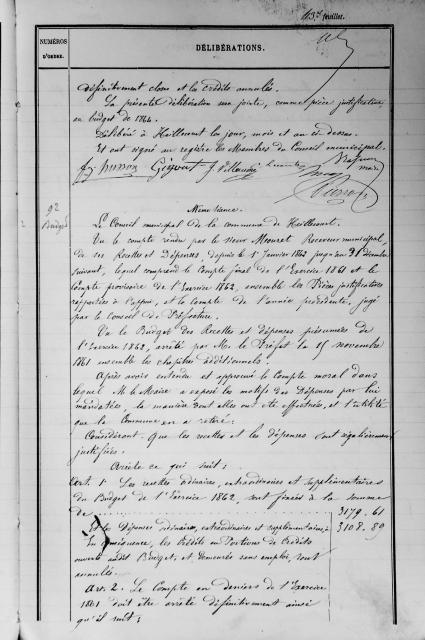 43e feuillet.
NUMÉROS
D'ORDRE.
DÉLIBÉRATIONS.
définitivement clos et les crédits annulés.
La présente délibération sera jointe, comme pièce justificative,
au budget de 1864.
Délibéré à Haillecourt les jour, mois et an ci-dessus.
Et ont signé au registre les Membres du Conseil municipal.
Husson
Même séance.
92
Budget
Le Conseil municipal de la commune de Haillecourt.
Vu le compte rendu par le sieur Receveur municipal,
de ses Recettes et Dépenses, depuis le 1er Janvier 1862 jusqu'au 31 décembre
suivant, lequel comprend le Compte final de l'Exercice 1861 et le
Compte provisoire de l'Exercice 1862, ensemble les Pièces justificatives
rapportées à l'appui, et le compte de l'année précédente, jugé
par le Conseil de Préfecture.
Vu le Budget des Recettes et dépenses présumées de
l'Exercice 1862, arrêté par M. le Préfet le 15 novembre
1861 ensemble les chapitres additionnels.
Après avoir entendu et approuvé le Compte moral dans
lequel M. le Maire a exposé les motifs des Dépenses par lui
mandatées, la manière dont elles ont été effectuées, et l'utilité
que la Commune en a retiré.
Considérant que les recettes et les dépenses sont régulièrement
justifiées.
Arrête ce qui suit:
Art. 1er Les recettes ordinaires, extraordinaires et supplémentaires
du Budget de l'Exercice 1862, sont fixées à la somme
de 3179. 61
Et les Dépenses ordinaires, extraordinaires et supplémentaires, à 3108. 89
En conséquence, les Crédits ou Portions de Crédits
ouverts audit Budget, et demeurés sans emploi, sont
annulés.
Art. 2. Le Compte en deniers de l'Exercice
1861 doit être arrêté définitivement ainsi
qu'il suit: